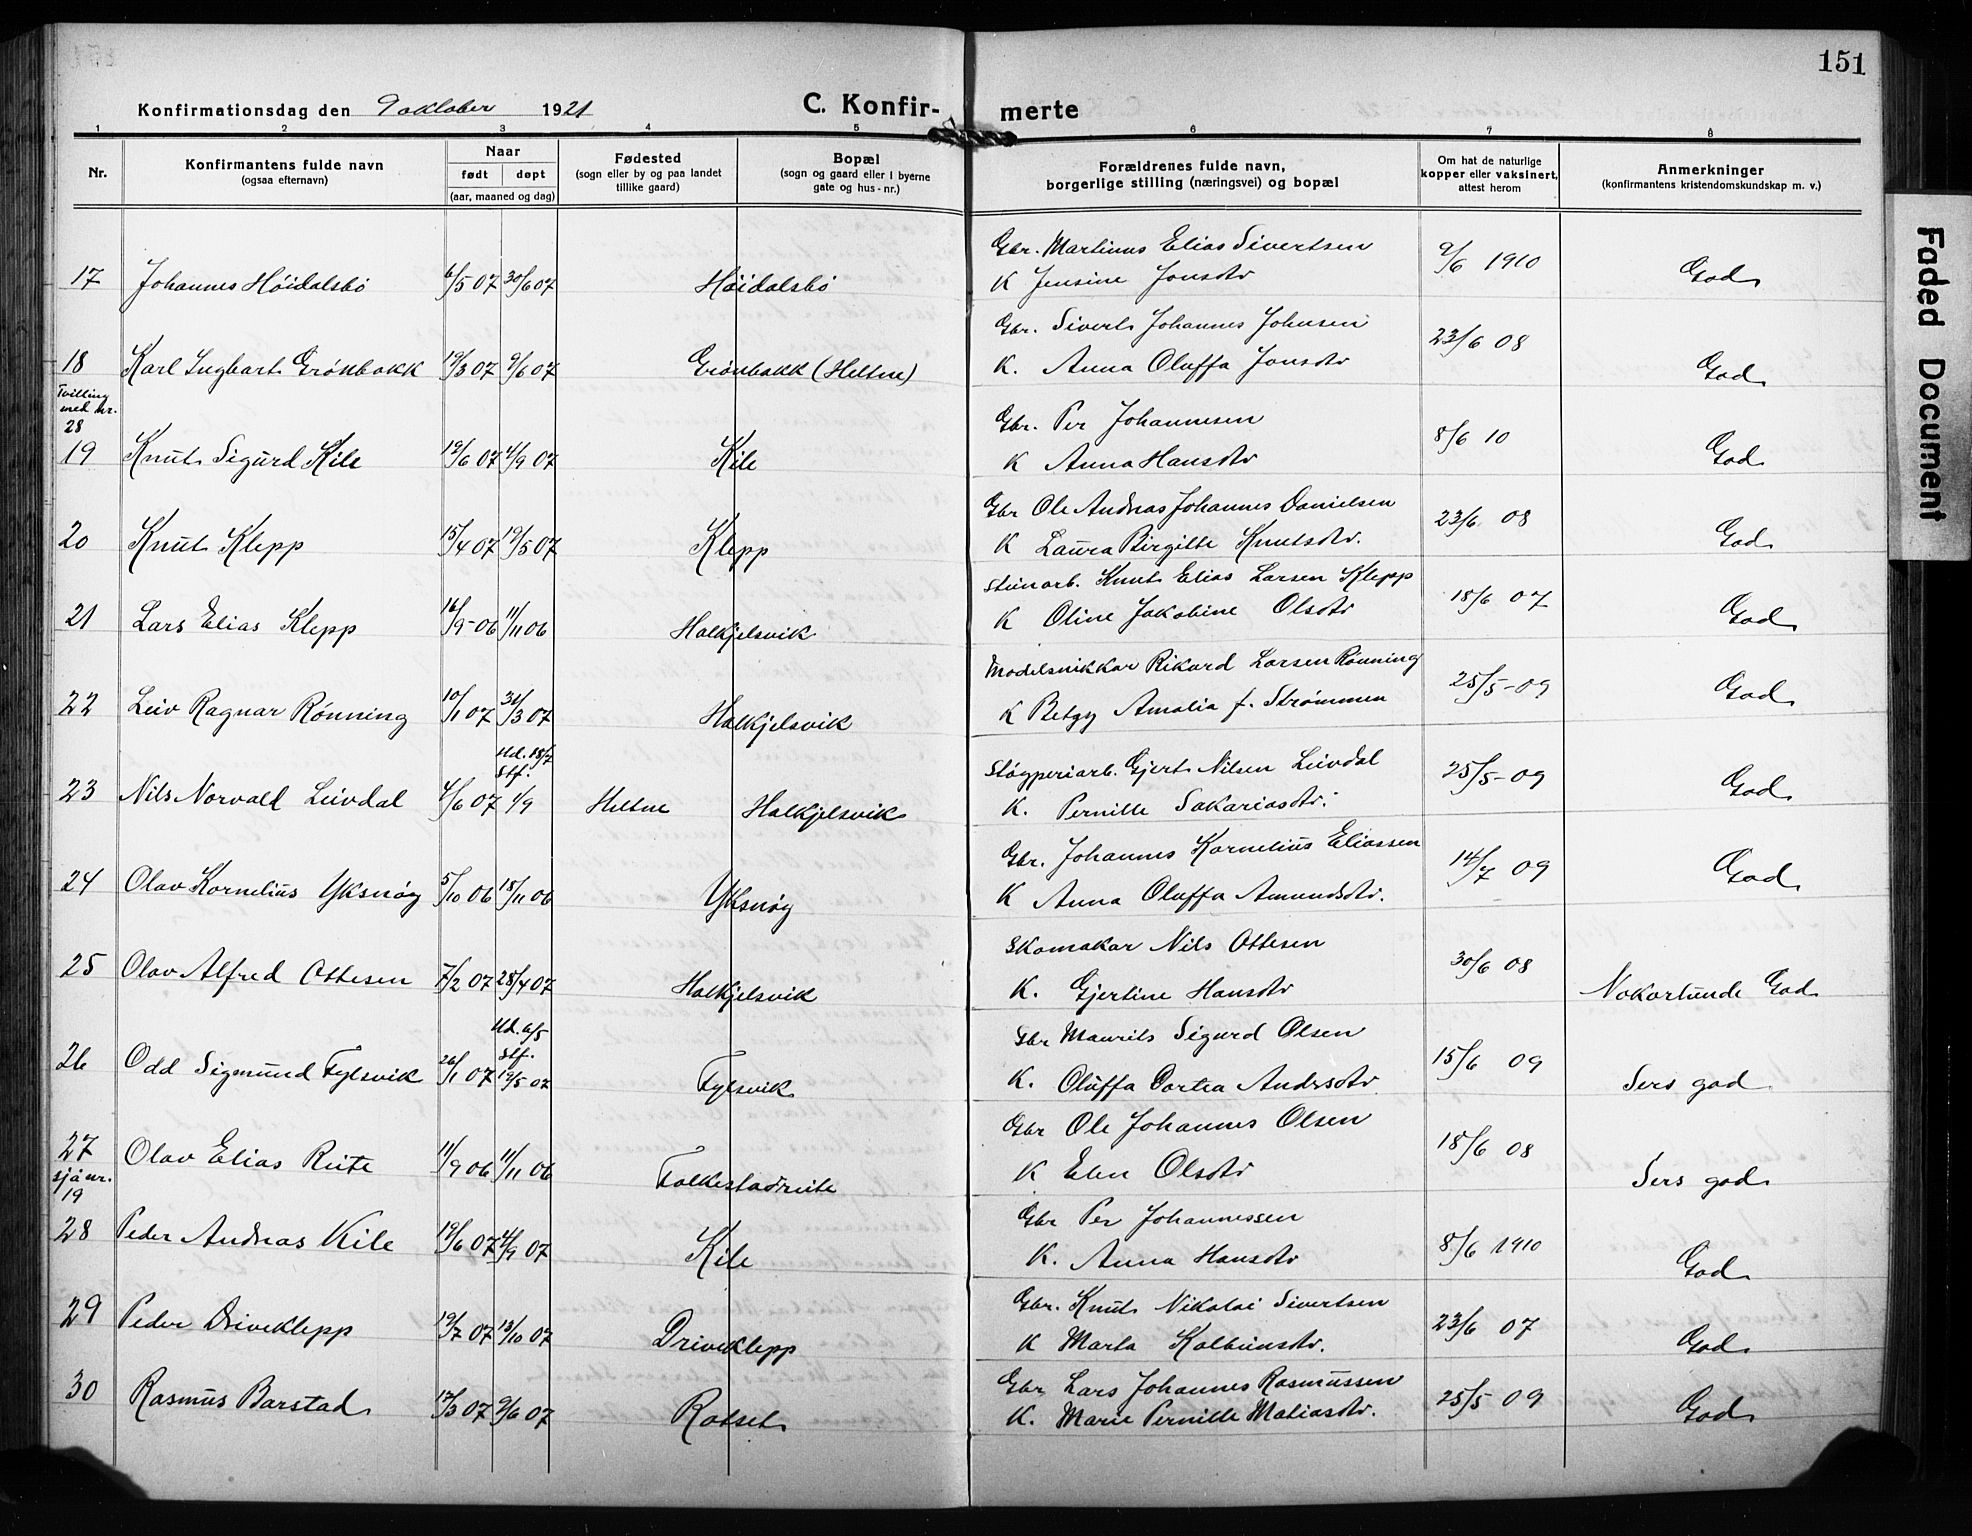 151
Konfirmationsdag den 9 oktober 1921 C. Konfir- merte
1 2 3 4 5 6 7 8
Nr.
Konfirmantens fulde navn
(ogsaa efternavn)
Naar
født døpt
(aar, maaned og dag)
Fødested
(sogn eller by og paa landet
tillike gaard)
Bopæl
(sogn og gaard eller i byerne
gate og hus-nr.)
Forældrenes fulde navn,
borgerlige stilling (næringsvei) og bopæl
Om hat de naturlige
kopper eller vaksinert,
attest herom
Anmerkninger
(konfirmantens kristendomskundskap m. v.)
Gbr. Martinus Elias Sivertsen 9/6 1910
17 Johannes Höidalsbö 6/5 07 30/6 07 Höidalsbö K Jensine Jonsdtr God
Gbr. Sivert Johannes Johnsen 23/6 08
18 Karl Ingbart Grönbakk 19/3 07 9/6 07 Grönbakk (Heltne) K. Anna Oluffa Jonsdtr God
Tvilling
med nr.
28
Gbr. Per Johannesen 8/6 10
19 Knut Sigurd Kile 19/6 07 4/9 07 Kile K Anna Hansdtr God
Gbr Ole Andreas Johannes Danielsen 23/6 08
20 Knut Klepp 15/4 07 19/5 07 Klepp K Laura Birgitte Knutsdtr. God
Steinarb. Knut Elias Larsen Klepp 18/6 07
21 Lars Elias Klepp 16/9-06 11/11 06 Halkjelsvik K Oline Jakobine Olsdtr God
Modelsnikkar Rikard Larsen Rönning 25/5-09
22 Leiv Ragnar Rönning 10/1 07 31/3 07 Halkjelsvik K Betzy Amalia f. Strömmen God
Hd. 18/7
Stf.
Stöyperiarb. Gjert Nilsen Leivdal 25/5-09
23 Nils Norvald Leivdal 4/6 07 1/9 Heltne Halkjelsvik K. Pernille Sakariasdtr. God
Gbr. Johannes Kornelius Eliassen 14/7 09
24 Olav Kornelius Yksnöy 5/10 06 18/11 06 Yksnöy K Anna Oluffa Amundsdtr. God
Skomakar Nils Ottesen 30/6 08
25 Olav Alfred Ottesen 7/2 07 28/4 07 Halkjelsvik K. Gjertine Hansdtr Nokorlunde God
Hd. 6/5
Stf.
Gbr Maurits Sigurd Olsen 15/6 09
26 Odd Sigmund Fylsvik 26/1 07 19/5 07 Fylsvik K. Oluffa Dortea Andrsdtr Sers god
Gbr Ole Johannes Olsen 18/6 08
27 Olav Elias Reite 11/9 06 11/11 06 Folkestadreite K Elen Olsdtr Sers god
sjå nr.
19
Gbr Per Johannessen 8/6 1910
28 Peder Andreas Kile 19/6 07 4/9 07 Kile K. Anna Hansdtr God
Gbr. Knut Nikolai Sivertsen 23/6 07
29 Peder Driveklepp 19/7 07 13/10 07 Driveklepp K Marta Kolbeinsdtr. God
Gbr Lars Johannes Rasmussen 25/5 09
30 Rasmus Barstad 17/3 07 9/6 07 Rotset K. Marie Pernille Matiasdtr. God
Faded Document